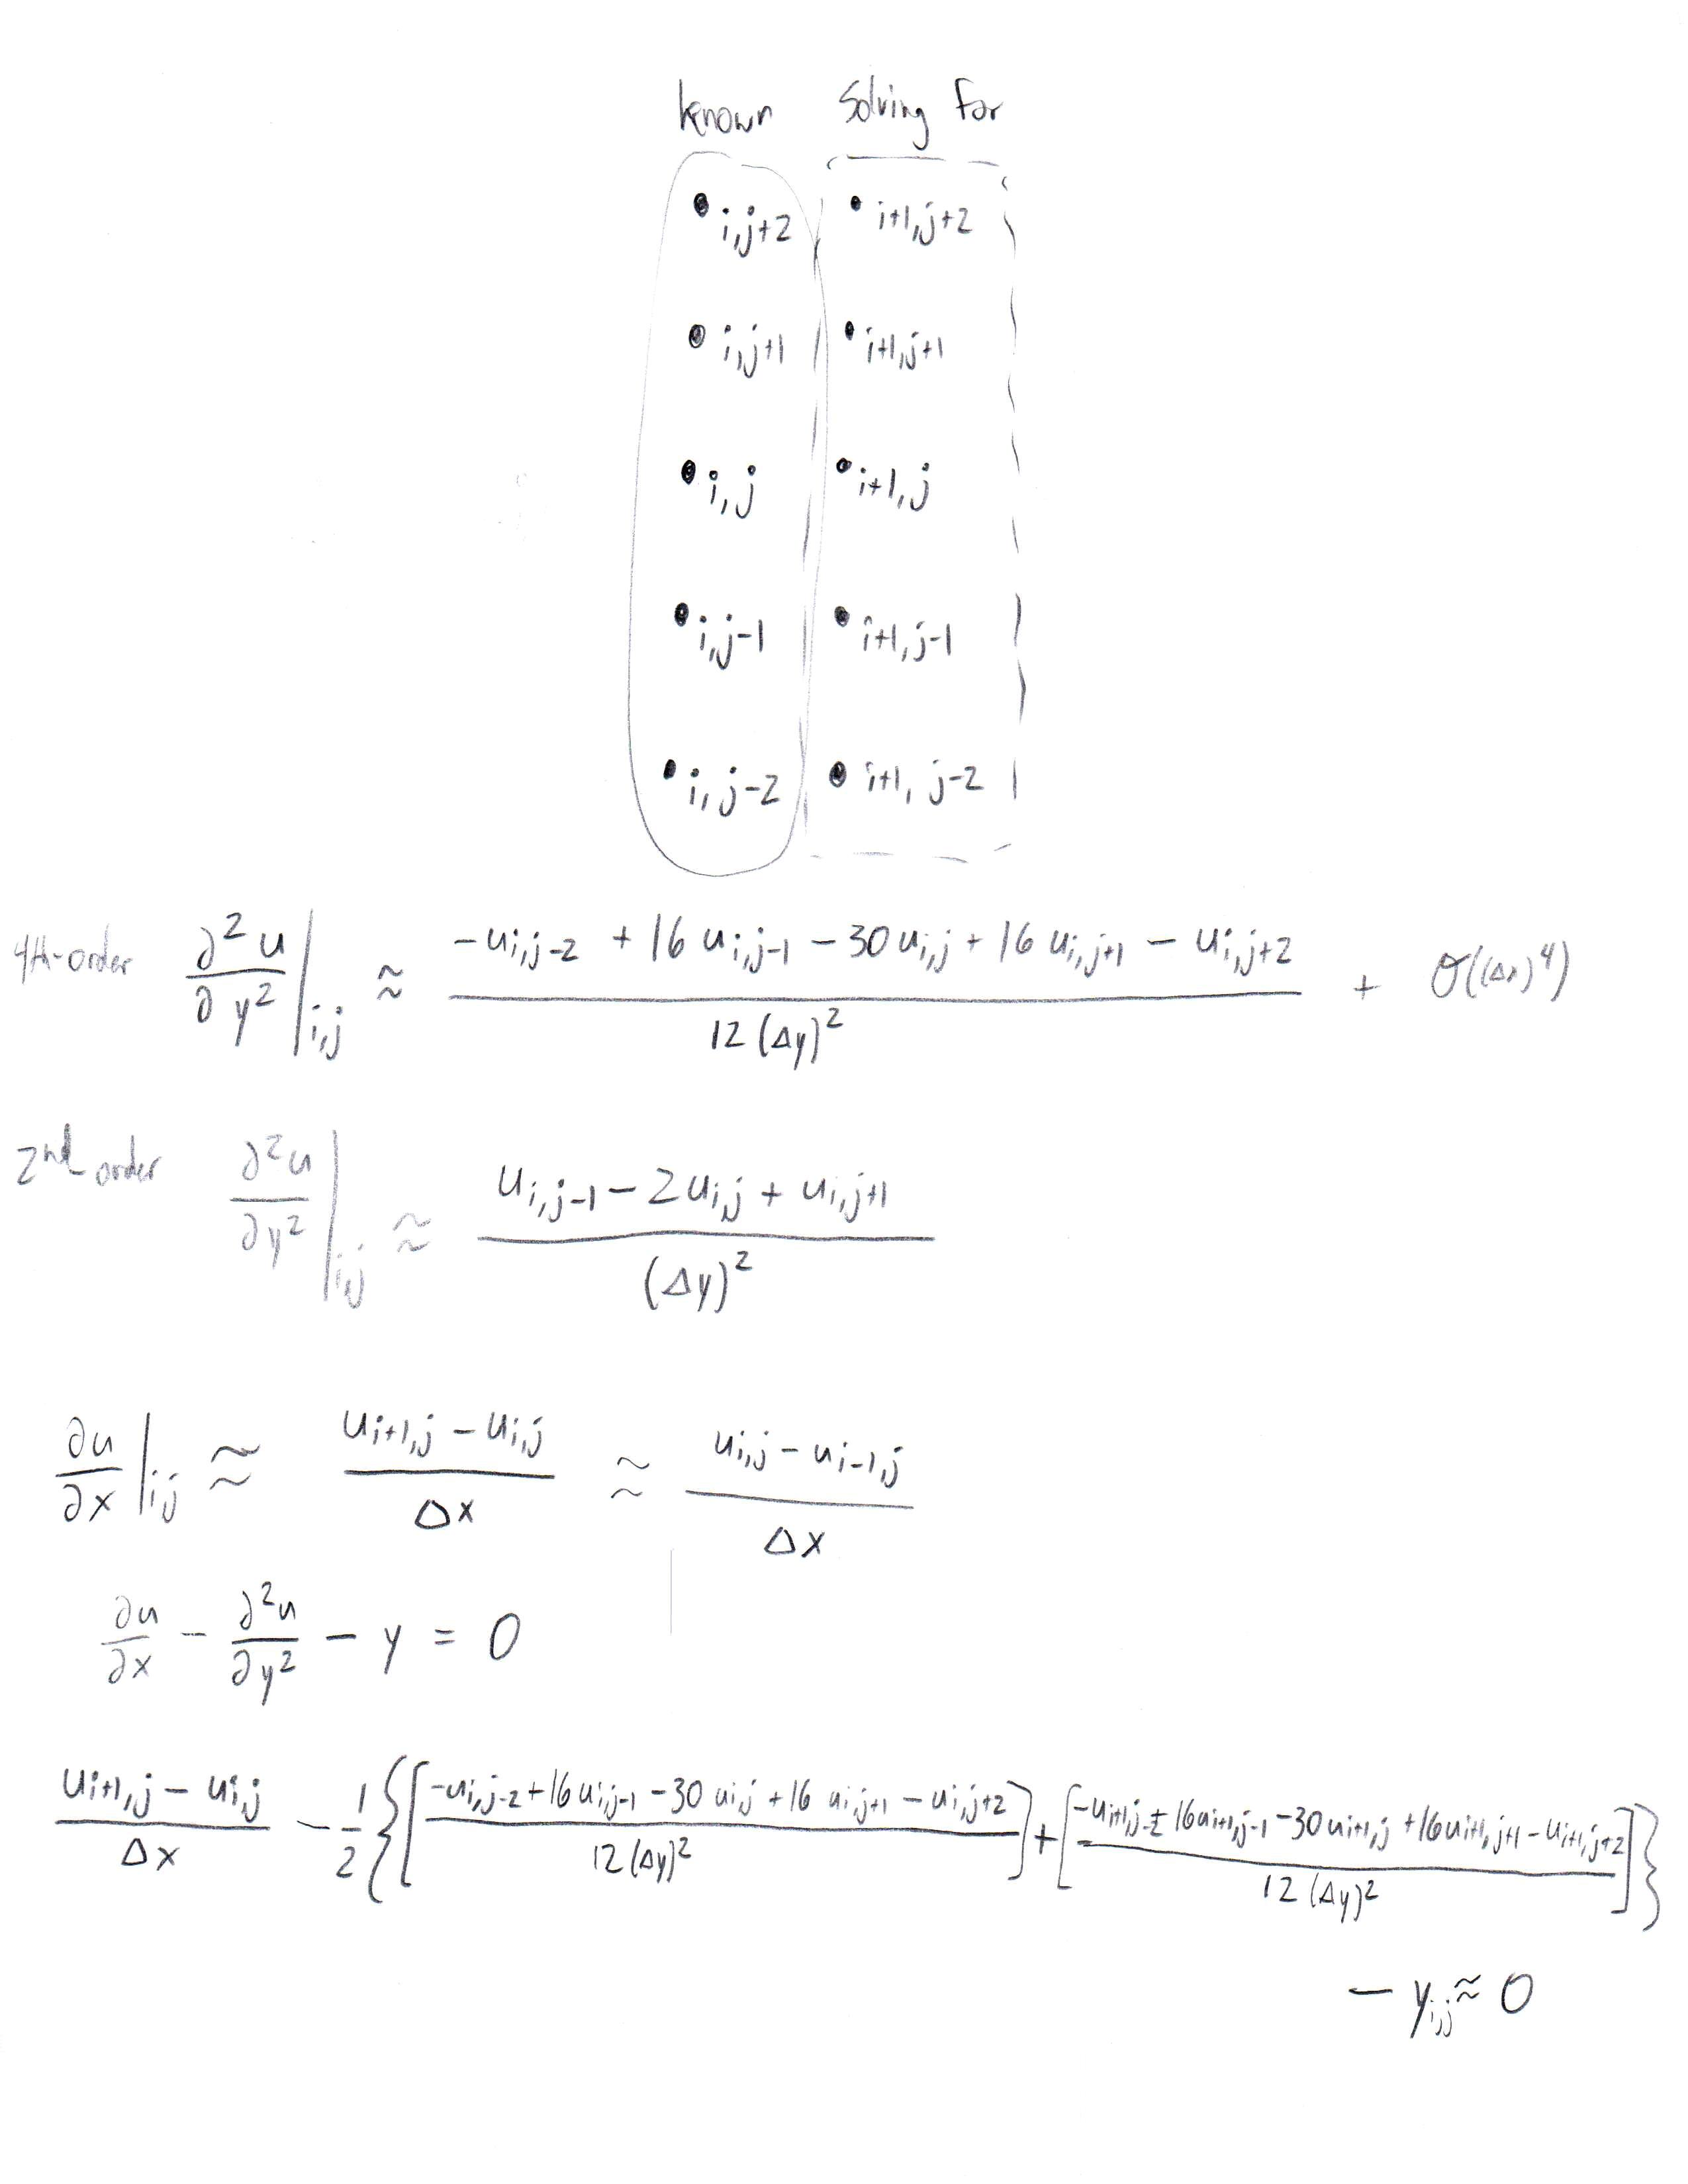 known solving for
i,j+2 i+1,j+2
i,j+1 i+1,j+1
i,j i+1,j
i,j-1 i+1,j-1
i,j-2 i+1, j-2
4th-order ∂²u/∂y²|i,j ≈ (-ui,j-2 + 16 ui,j-1 - 30 ui,j + 16 ui,j+1 - ui,j+2) / 12 (Δy)² + O((Δx)⁴)
2nd order ∂²u/∂y²|i,j ≈ (ui,j-1 - 2ui,j + ui,j+1) / (Δy)²
∂u/∂x|i,j ≈ (ui+1,j - ui,j) / Δx ≈ (ui,j - ui-1,j) / Δx
∂u/∂x - ∂²u/∂y² - y = 0
(ui+1,j - ui,j) / Δx - 1/2 {[(-ui,j-2 + 16 ui,j-1 - 30 ui,j + 16 ui,j+1 - ui,j+2) / 12 (Δy)²] + [(-ui+1,j-2 + 16 ui+1,j-1 - 30 ui+1,j + 16 ui+1,j+1 - ui+1,j+2) / 12 (Δy)²]}
- yi,j ≈ 0